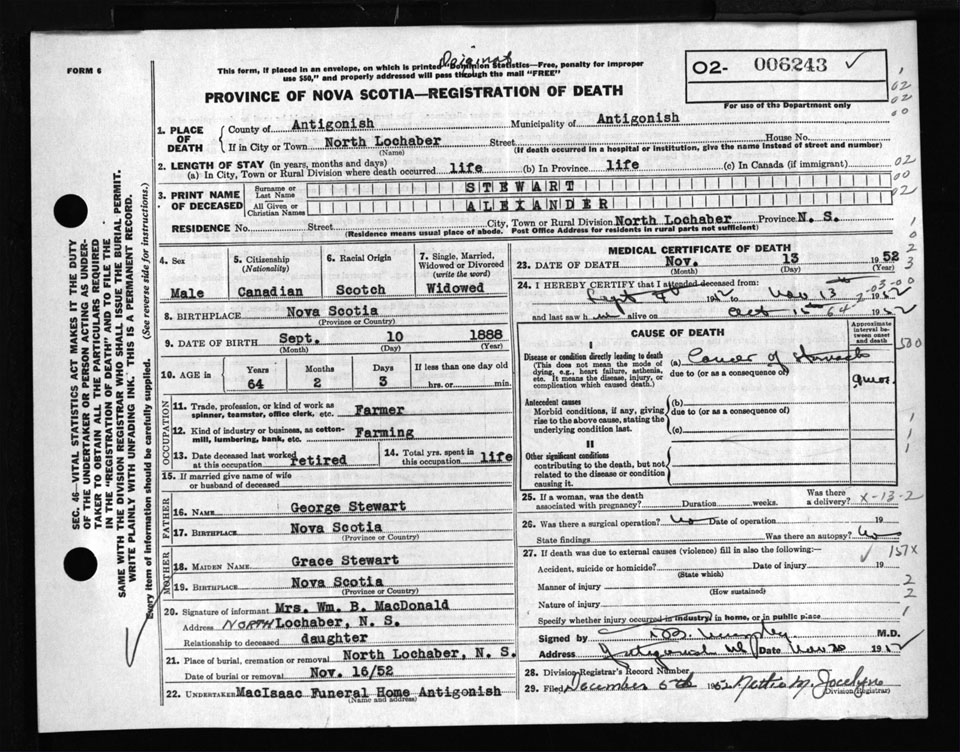 FORM 6
Original
This form, if placed in an envelope, on which is printed "Dominion Statistics—Free, penalty for improper
use $50," and properly addressed will pass through the mail "FREE"
O2- 006243 ✓
For use of the Department only
PROVINCE OF NOVA SCOTIA—REGISTRATION OF DEATH
1. PLACE OF DEATH { County of Antigonish Municipality of Antigonish
If in City or Town North Lochaber Street House No.
(Name) (If death occurred in a hospital or institution, give the name instead of street and number)
2. LENGTH OF STAY (in years, months and days)
(a) In City, Town or Rural Division where death occurred life (b) In Province life (c) In Canada (if immigrant)
3. PRINT NAME OF DECEASED { Surname or Last Name STEWART
All Given or Christian Names ALEXANDER
RESIDENCE No. Street City, Town or Rural Division North Lochaber Province N. S.
(Residence means usual place of abode. Post Office Address for residents in rural parts not sufficient)
SEC. 46—VITAL STATISTICS ACT MAKES IT THE DUTY
OF THE UNDERTAKER OR PERSON ACTING AS UNDER-
TAKER TO OBTAIN ALL THE PARTICULARS REQUIRED
IN THE "REGISTRATION OF DEATH" AND TO FILE THE
SAME WITH THE DIVISION REGISTRAR WHO SHALL ISSUE THE BURIAL PERMIT.
WRITE PLAINLY WITH UNFADING INK. THIS IS A PERMANENT RECORD.
Every item of information should be carefully supplied. (See reverse side for instructions.)
4. Sex
Male
5. Citizenship
(Nationality)
Canadian
6. Racial Origin
Scotch
7. Single, Married,
Widowed or Divorced
(write the word)
Widowed
8. BIRTHPLACE Nova Scotia
(Province or Country)
9. DATE OF BIRTH Sept. 10 1888
(Month) (Day) (Year)
10. AGE in { Years Months Days If less than one day old
64 2 3 hrs. or min.
OCCUPATION
11. Trade, profession, or kind of work as
spinner, teamster, office clerk, etc. Farmer
12. Kind of industry or business, as cotton-
mill, lumbering, bank, etc. Farming
13. Date deceased last worked
at this occupation retired
14. Total yrs. spent in
this occupation life
15. If married give name of wife
or husband of deceased
FATHER
16. Name George Stewart
17. Birthplace Nova Scotia
(Province or Country)
MOTHER
18. Maiden Name Grace Stewart
19. Birthplace Nova Scotia
(Province or Country)
20. Signature of informant Mrs. Wm. B. MacDonald
Address NORTH Lochaber, N. S.
Relationship to deceased daughter
21. Place of burial, cremation or removal North Lochaber, N. S.
Date of burial or removal Nov. 16/52
22. Undertaker MacIsaac Funeral Home Antigonish
(Name and address)
MEDICAL CERTIFICATE OF DEATH
23. DATE OF DEATH Nov. 13 1952
(Month) (Day) (Year)
24. I HEREBY CERTIFY that I attended deceased from:
Sept 1952 to Nov 13th 1952
and last saw h im alive on Oct 15th 1952
CAUSE OF DEATH
Approximate
interval be-
tween onset
and death
Disease or condition directly leading to death
(This does not mean the mode of
dying, e.g., heart failure, asthenia,
etc. It means the disease, injury, or
complication which caused death.)
(a) Cancer of Stomach
due to (or as a consequence of)
9 mos.
Antecedent causes
Morbid conditions, if any, giving
rise to the above cause, stating the
underlying condition last.
(b)
due to (or as a consequence of)
(c)
II
Other significant conditions
contributing to the death, but not
related to the disease or condition
causing it.
25. If a woman, was the death
associated with pregnancy? Duration weeks. Was there
a delivery? X-13-2
26. Was there surgical operation? No Date of operation 19
State findings Was there an autopsy? No
27. If death was due to external causes (violence) fill in also the following:— ✓ 157X
Accident, suicide or homicide? Date of injury 19
(State which)
Manner of injury
(How sustained)
Nature of injury
Specify whether injury occurred in industry, in home, or in public place
Signed by M.D.
Address Antigonish NS Date Nov 20 1952
28. Division-Registrar's Record Number
29. Filed December 5th 1952 Nettie M. Jocelyne
(Division Registrar)